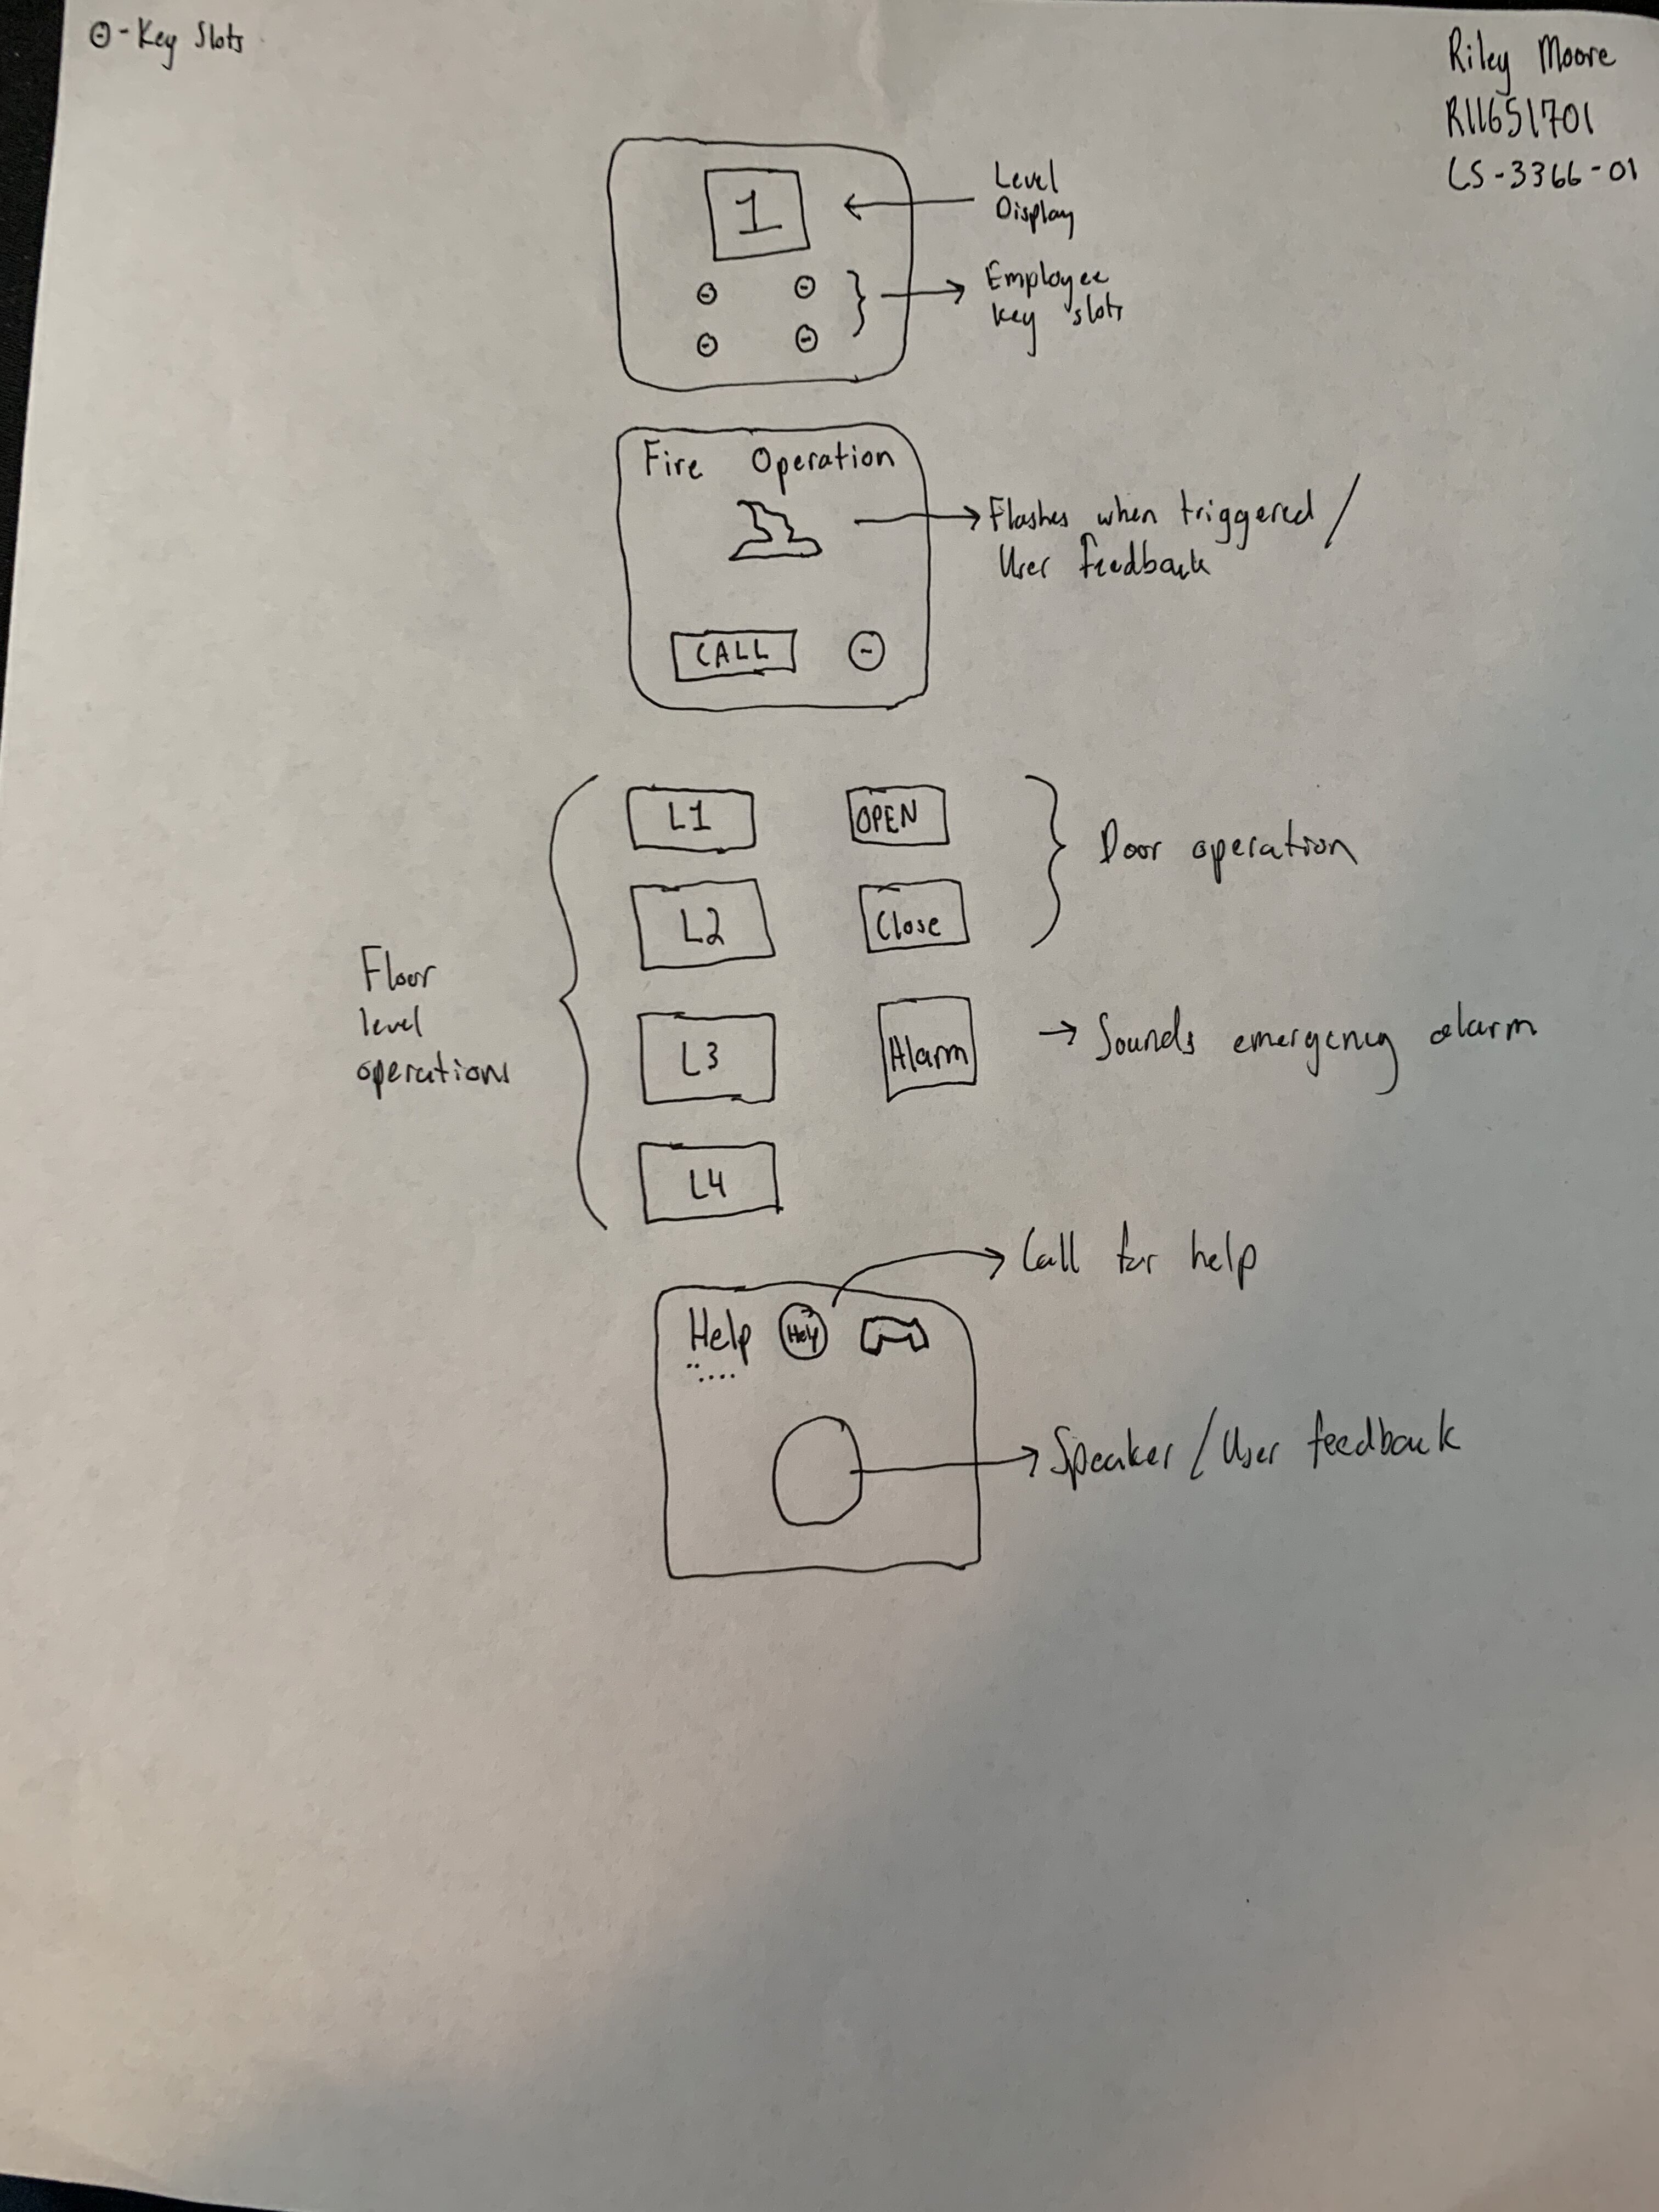 ⊖ - Key Slots
Riley Moore
R11651701
CS-3366-01
1
Level
Display
Employee
key slots
Fire Operation
Flashes when triggered /
User feedback
CALL
L1
OPEN
Door operation
L2
Close
Floor
level
operations
L3
Alarm
→ Sounds emergency alarm
L4
Call for help
Help
Help
Speaker / User feedback